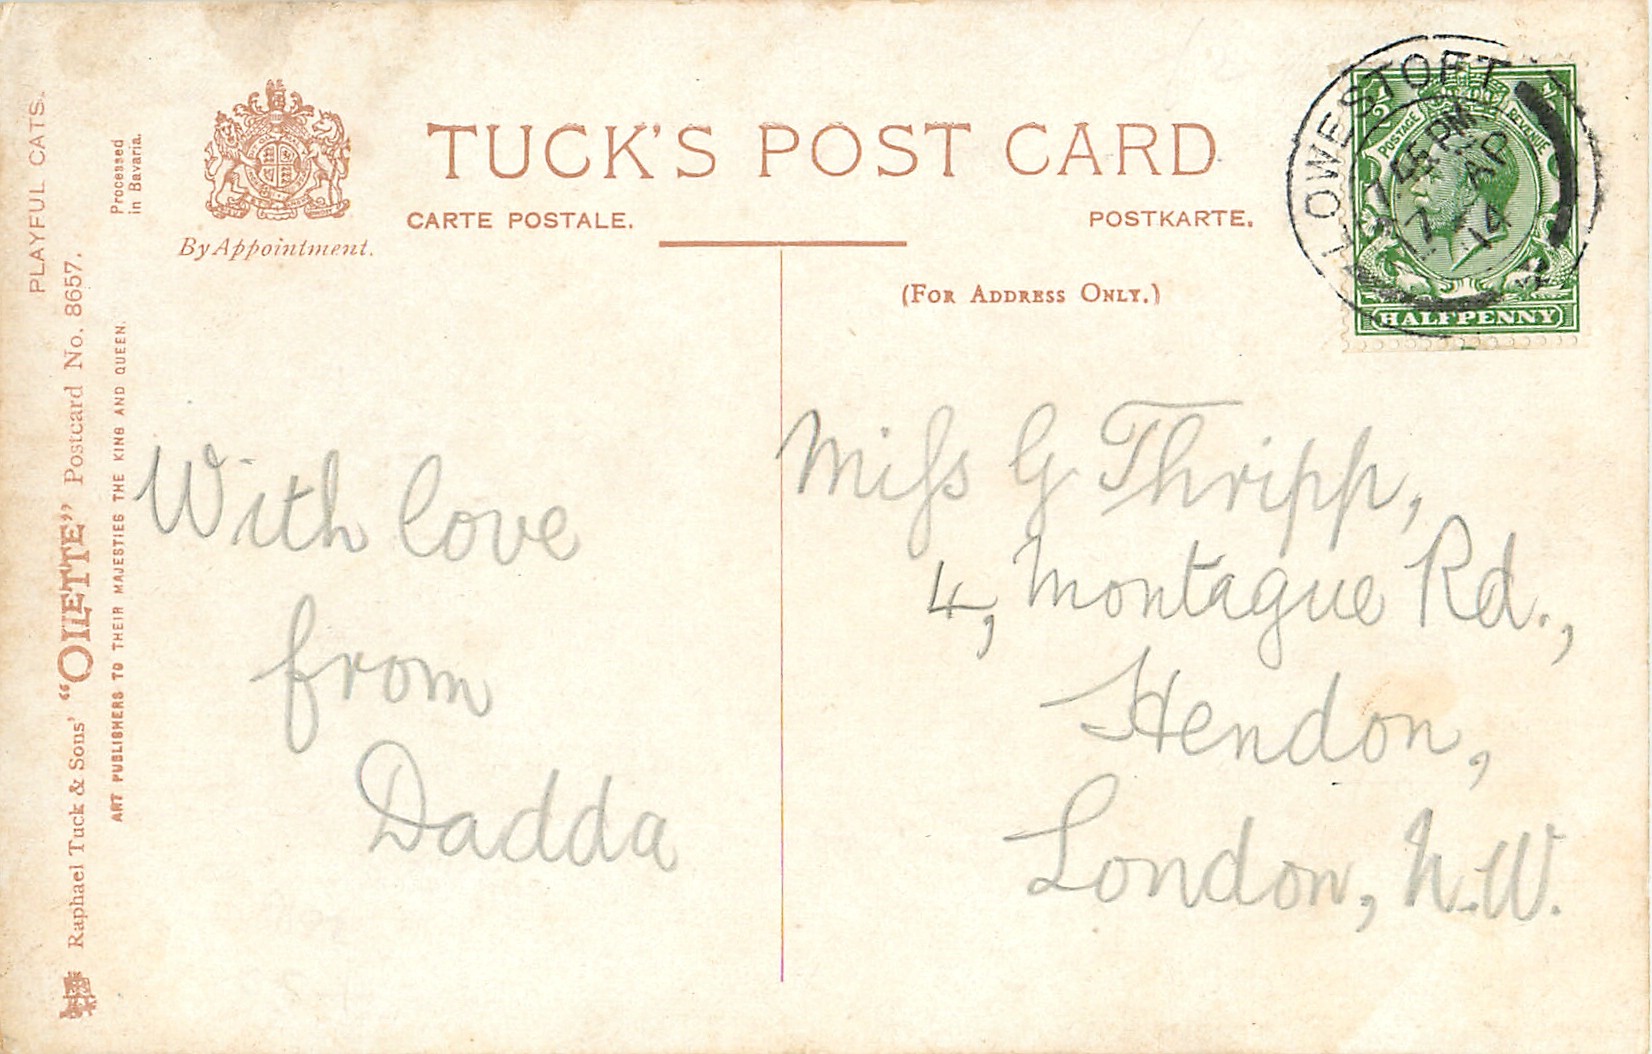 TUCK'S POST CARD
CARTE POSTALE.
POSTKARTE.
By Appointment.
(FOR ADDRESS ONLY.)
PLAYFUL CATS.
Raphael Tuck & Sons' "OILETTE" Postcard No. 8657.
ART PUBLISHERS TO THEIR MAJESTIES THE KING AND QUEEN.
Processed
in Bavaria.
LOWESTOFT
45 PM
7 AP
14
POSTAGE
REVENUE
HALFPENNY
With love
from
Dadda
Miss G Thripp,
4, Montague Rd.,
Hendon,
London, N.W.